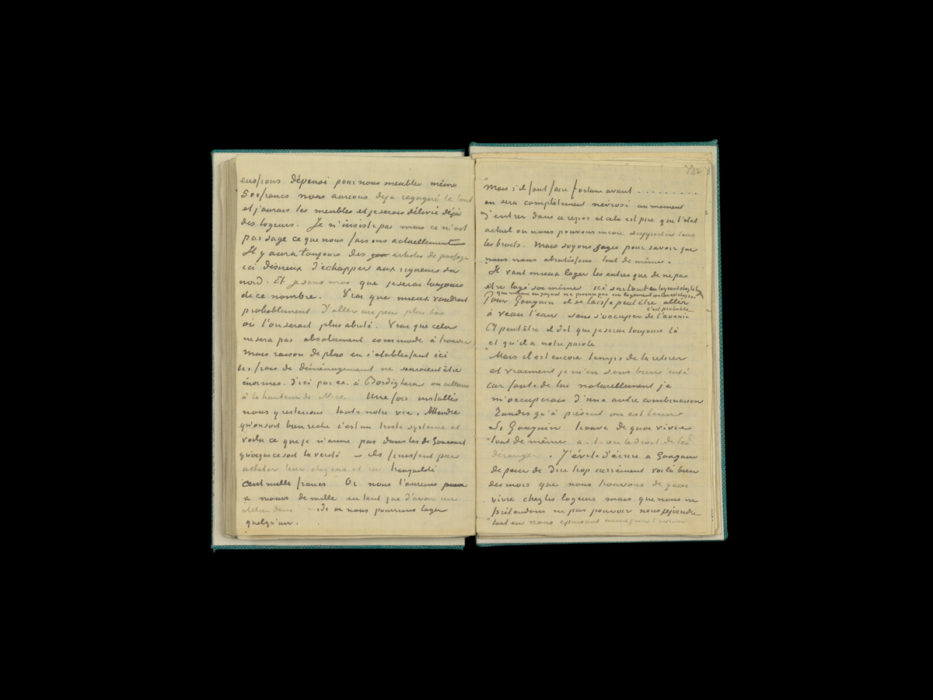 eussions dépensé pour nous meubler même
500 francs nous aurions déjà regagné le tout
et j'aurais les meubles et je serais délivré déjà
des logeurs. Je n'insiste pas mais ce n'est
pas sage ce que nous faisons actuellement
Il y aura toujours des artistes de passage
ici désireux d'échapper aux rigueurs du
nord. Et je sens moi que je serai toujours
de ce nombre. Vrai que mieux vaudrait
probablement d'aller un peu plus bas
où l'on serait plus abrité. Vrai que cela
ne sera pas absolument commode à trouver
mais raison de plus en s'établissant ici
les frais de déménagement ne sauraient être
énormes. D'ici par ex. à Bordighera ou ailleurs
à la hauteur de Nice. Une fois installés
nous y resterions toute notre vie. Attendre
qu'on soit bien riche c'est un triste système et
voilà ce que je n'aime pas dans les de Goncourt
quoique ce soit la vérité – ils finissent par
acheter leur chez eux et leur tranquillité
cent mille francs. Or nous l'aurions
à moins de mille en tant que d'avoir un
atelier dans où nous pourrions loger
quelqu'un.
Mais s'il faut faire fortune avant .........
on sera complètement névrosé au moment
d'entrer dans ce repos et cela est pire que l'état
actuel où nous pouvons encore supporter tous
les bruits. Mais soyons sages pour savoir que
nous nous abrutissons tout de même.
Il vaut mieux loger les autres que de ne pas
être logé soi même ici surtout en logeant chez le
qui même en payant ne procure pas un logement où l'on est chez soi.
Pour Gauguin il se laisse peut être aller
c'est probable
à vau l'eau sans s'occuper de l'avenir
Et peut être il dit que je serai toujours là
et qu'il a notre parole
Mais il est encore temps de la retirer
et vraiment je m'en sens bien tenté
car faute de lui naturellement je
m'occuperais d'une autre combinaison
Tandis qu'à présent on est tenu
Si Gauguin trouve de quoi vivre
tout de même a-t-on le droit de le
déranger. J'évite d'écrire à Gauguin
de peur de dire trop carrément voilà bien
des mois que nous trouvons de quoi
vivre chez les logeurs mais que nous
prétendons ne pas pouvoir nous rejoindre
tout en nous épuisant